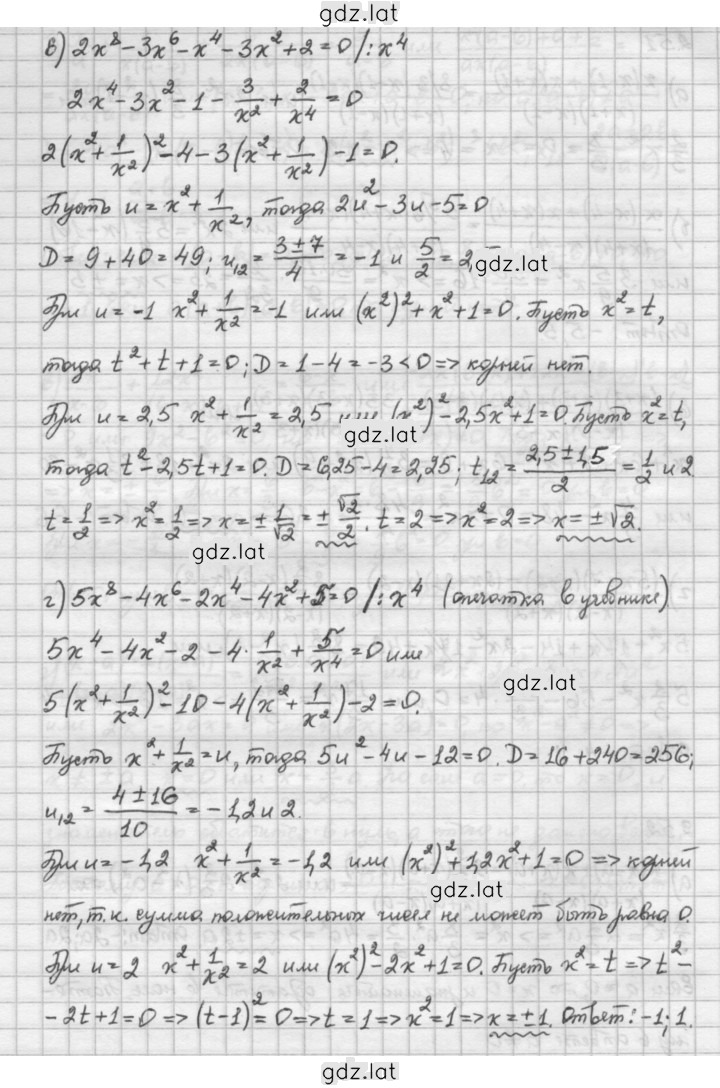 gdz.lat
в) 2x⁸-3x⁶-x⁴-3x²+2=0/:x⁴
2x⁴-3x²-1-3/x²+2/x⁴=0
2(x²+1/x²)²-4-3(x²+1/x²)-1=0.
Пусть u=x²+1/x², тогда 2u²-3u-5=0
D=9+40=49; u₁,₂=(3±7)/4=-1 и 5/2=2,
gdz.lat
При u=-1 x²+1/x²=-1 или (x²)²+x²+1=0. Пусть x²=t,
тогда t²+t+1=0; D=1-4=-3<0=> корней нет.
При u=2,5 x²+1/x²=2,5 или (x²)²-2,5x²+1=0. Пусть x²=t,
gdz.lat
тогда t²-2,5t+1=0. D=6,25-4=2,25; t₁,₂=(2,5±1,5)/2=1/2 и 2
t=1/2=>x²=1/2=>x=±1/√2=±√2/2. t=2=>x²=2=>x=±√2.
gdz.lat
г) 5x⁸-4x⁶-2x⁴-4x²+5=0/:x⁴ (опечатка в учебнике)
5x⁴-4x²-2-4·1/x²+5/x⁴=0 или
gdz.lat
5(x²+1/x²)²-10-4(x²+1/x²)-2=0.
Пусть x²+1/x²=u, тогда 5u²-4u-12=0. D=16+240=256;
u₁,₂=(4±16)/10=-1,2 и 2.
При u=-1,2 x²+1/x²=-1,2 или (x²)²+1,2x²+1=0=> корней
gdz.lat
нет, т.к. сумма положительных чисел не может быть равна 0.
При u=2 x²+1/x²=2 или (x²)²-2x²+1=0. Пусть x²=t=>t²-
-2t+1=0=>(t-1)²=0=>t=1=>x²=1=>x=±1. Ответ: -1; 1.
gdz.lat